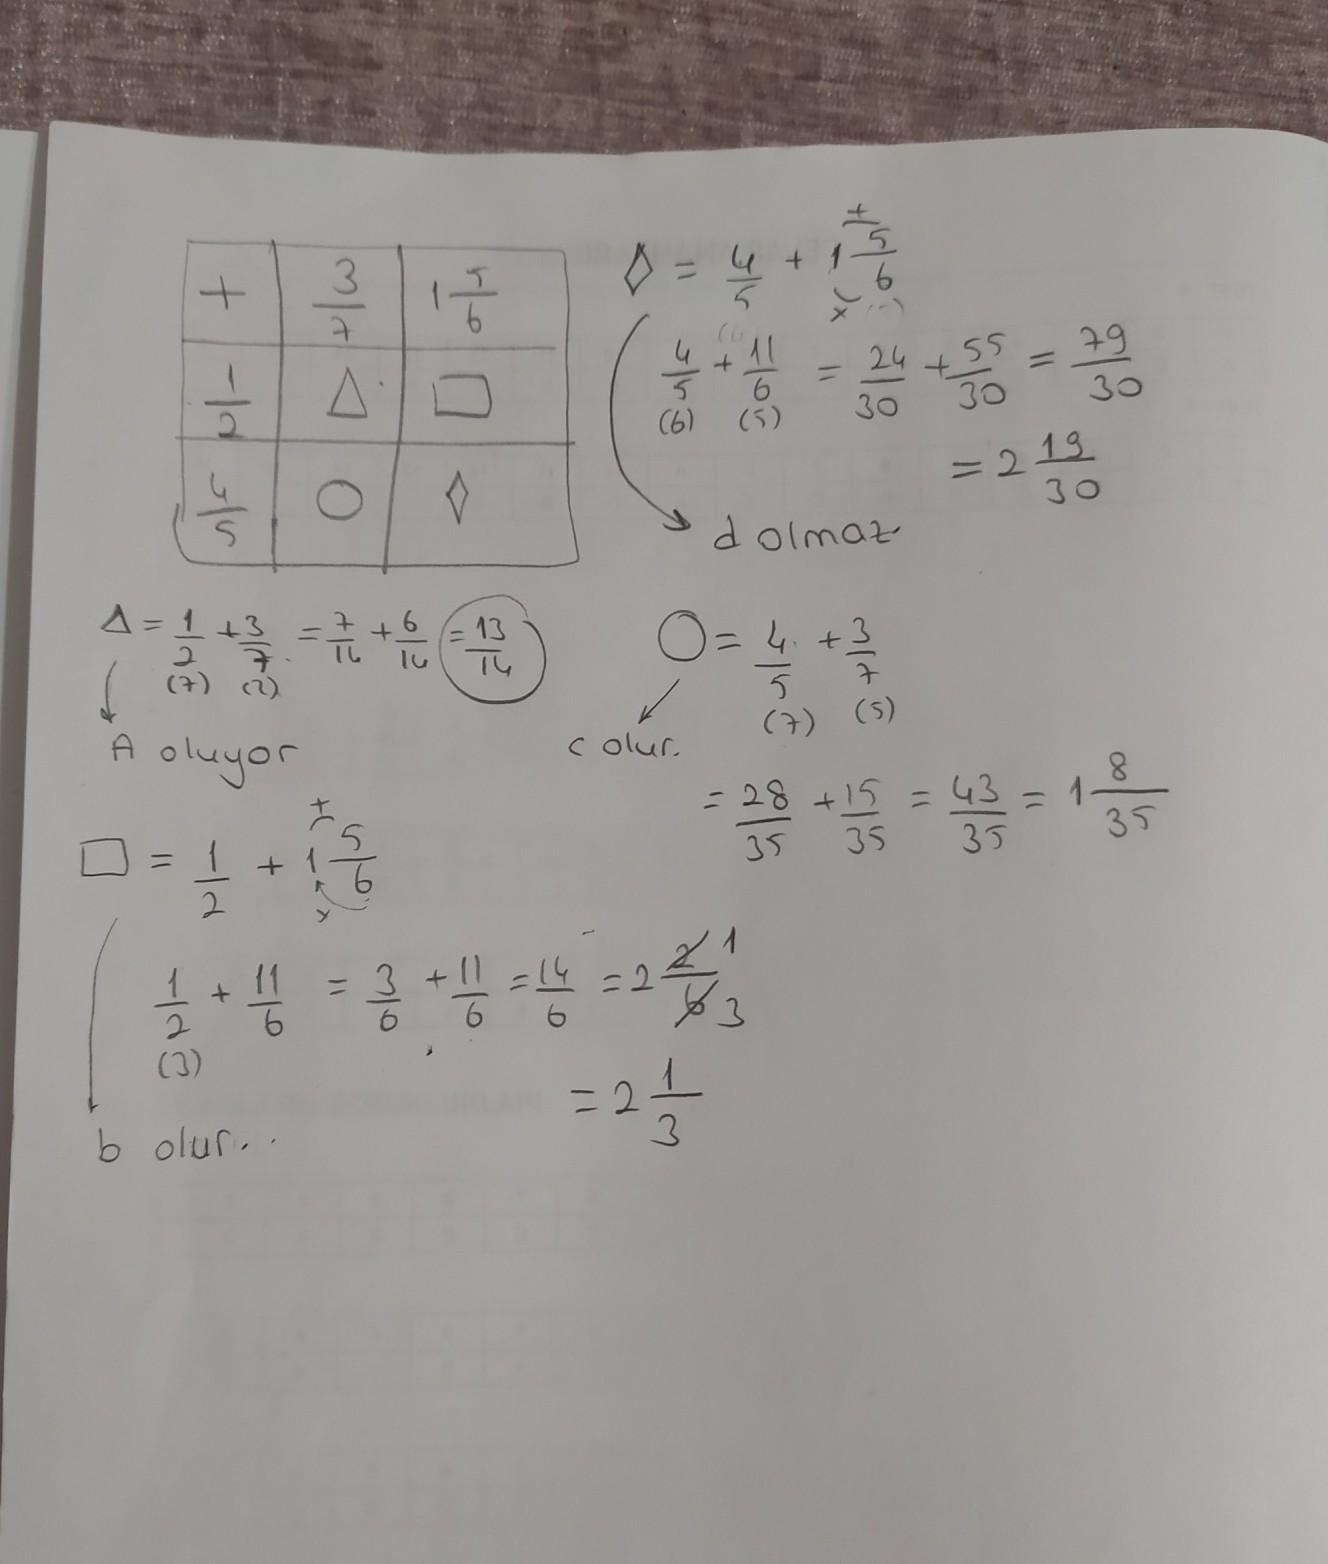 + 3/7 1 5/6
1/2 △ □
4/5 ○ ◊
◊ = 4/5 + 1 5/6
+
x
4/5 + 11/6 = 24/30 + 55/30 = 79/30
(6) (5)
= 2 19/30
d olmaz
△ = 1/2 + 3/7 = 7/14 + 6/14 = 13/14
(7) (2)
A oluyor
○ = 4/5 + 3/7
(7) (5)
c olur.
= 28/35 + 15/35 = 43/35 = 1 8/35
□ = 1/2 + 1 5/6
+
x
1/2 + 11/6 = 3/6 + 11/6 = 14/6 = 2 2/6 1 3
(3)
= 2 1/3
b olur..